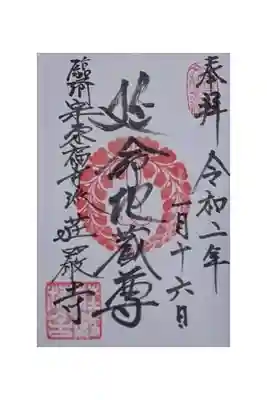 奉拝
令和二年
一月十六日
延命地蔵尊
臨済宗東福寺派
荘厳寺